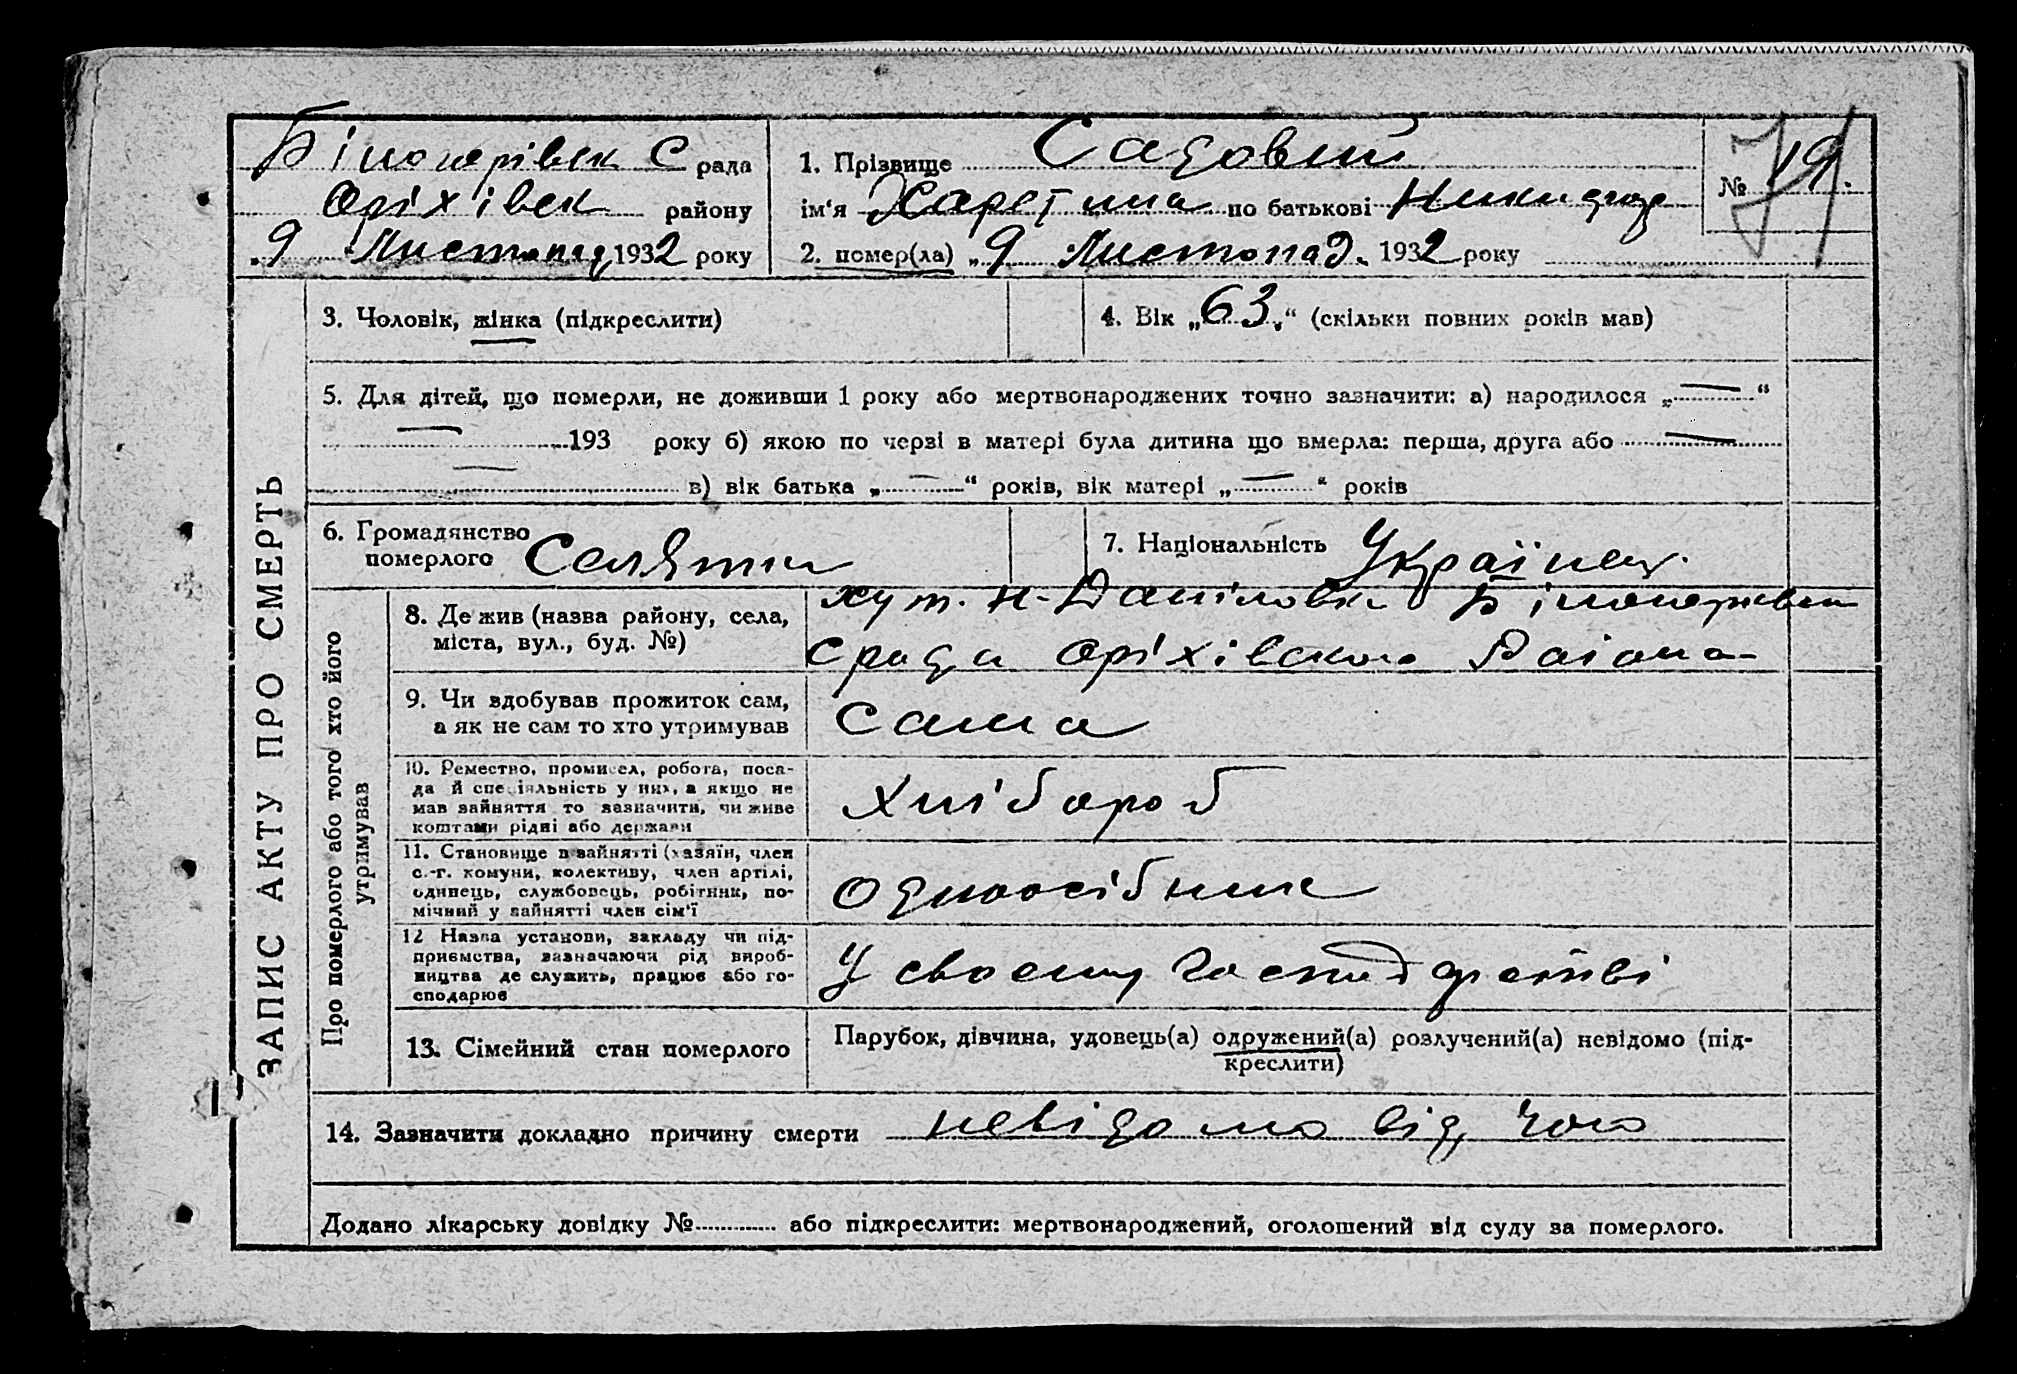 Біло­церівск С рада
Оріхівск району
„9 Листопад 1932 року
1. Прізвище Садовий
ім'я Харетина по батькові Никидор
2. помер(ла) „9 Листопад. 1932 року
№ 19.
ЗАПИС АКТУ ПРО СМЕРТЬ
3. Чоловік, жінка (підкреслити)
4. Вік „63.“ (скільки повних років мав)
5. Для дітей, що померли, не доживши 1 року або мертвонароджених точно зазначити: а) народилося „—“
— 193 року б) якою по черзі в матері була дитина що вмерла: перша, друга або —
— в) вік батька „—“ років, вік матері „—“ років
6. Громадянство
померлого Селяни
7. Національність Українец.
Про померлого або того хто його
утримував
8. Де жив (назва району, села,
міста, вул., буд. №)
хут. Н-Даніловка
Срада Оріхівского Раіона
9. Чи здобував прожиток сам,
а як не сам то хто утримував
Сама
10. Ремество, промисел, робота, поса-
да й спеціяльність у них, а якщо не
мав зайняття то зазначити, чи живе
коштами рідні або держави
Хлібороб
11. Становище в зайнятті (хазяїн, член
с.-г. комуни, колективу, член артілі,
одинець, службовець, робітник, по-
мічний у зайнятті член сім'ї
Одноосібник
12 Назва установи, закладу чи під-
приємства, зазначаючи рід вироб-
ництва де служить, працює або го-
сподарює
У своему господарстві
13. Сімейний стан померлого
Парубок, дівчина, удовець(а) одружений(а) розлучений(а) невідомо (під-
креслити)
14. Зазначити докладно причину смерти невідомо від чого
Додано лікарську довідку № або підкреслити: мертвонароджений, оголошений від суду за померлого.